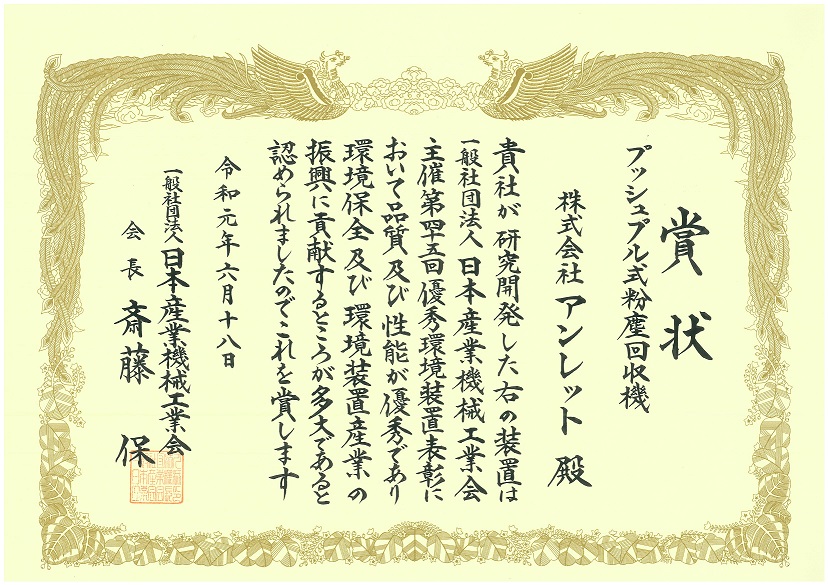 賞状
プッシュプル式粉塵回収機
株式会社 アンレット 殿
貴社が研究開発した右の装置は
一般社団法人日本産業機械工業会
主催第四十五回優秀環境装置表彰に
おいて品質及び性能が優秀であり
環境保全及び環境装置産業の
振興に貢献するところが多大であると
認められましたのでこれを賞します
令和元年六月十八日
一般社団法人日本産業機械工業会
会長 斎藤 保